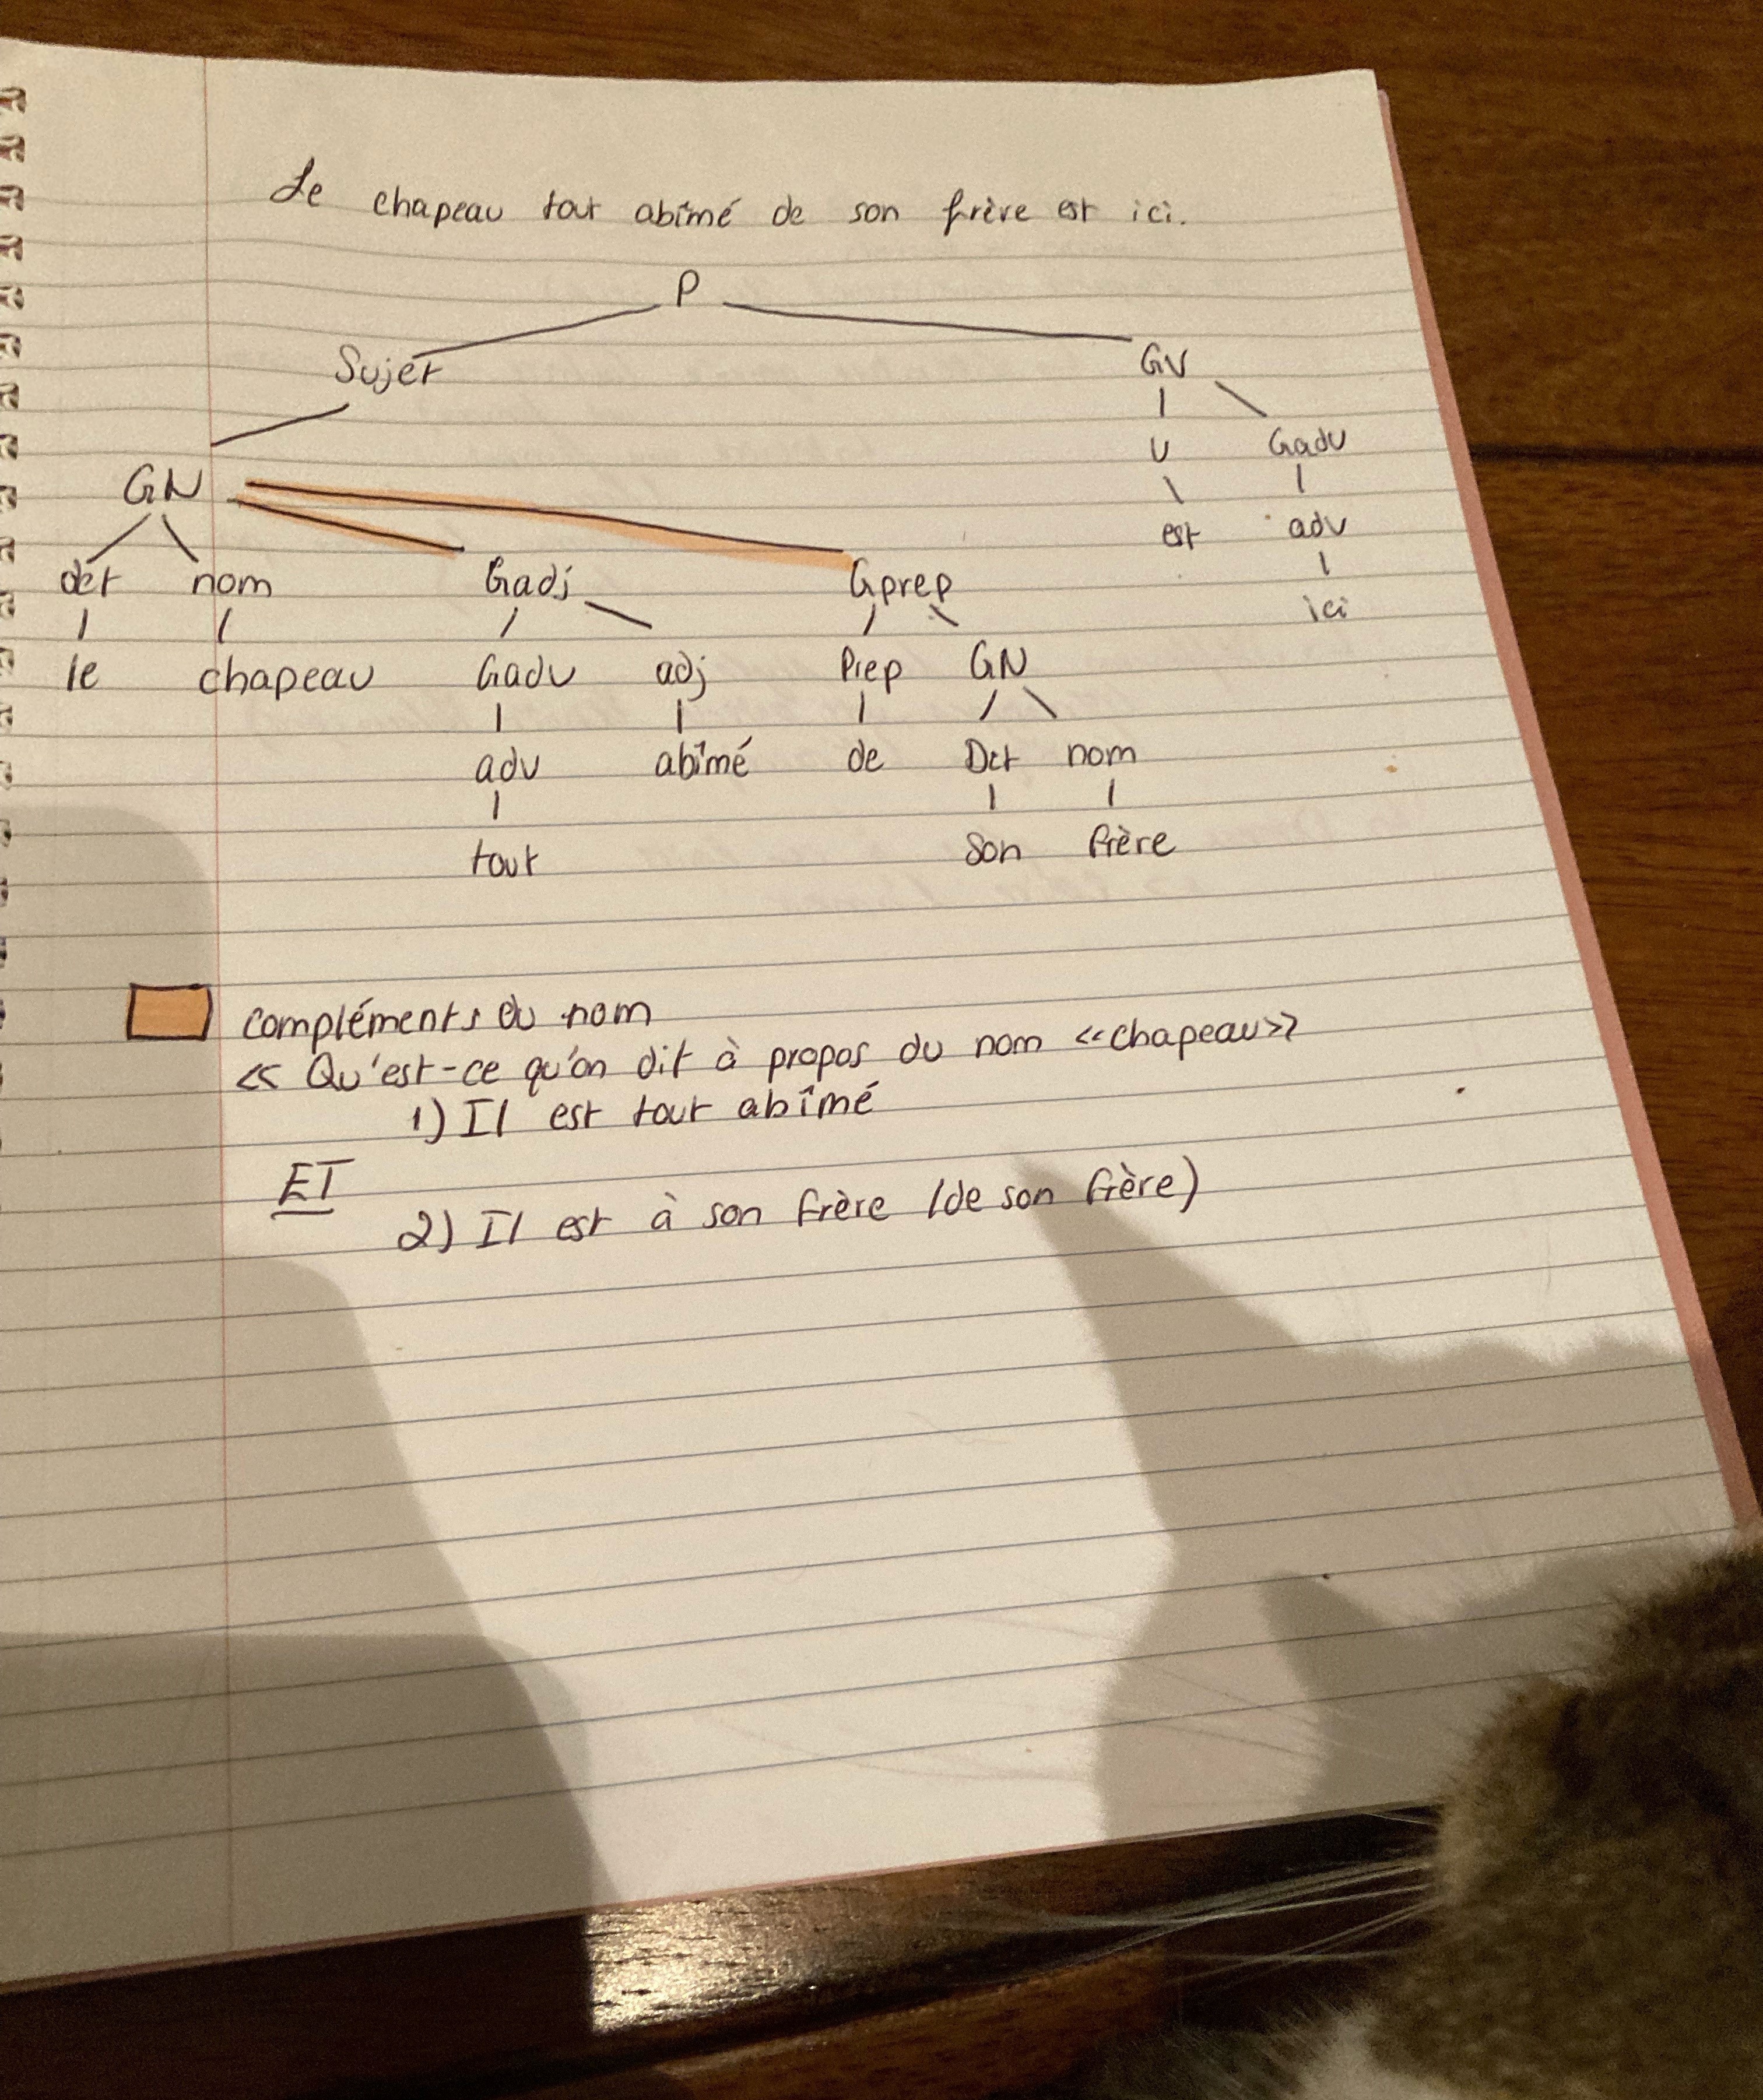 Le chapeau tout abîmé de son frère est ici.
P
Sujet GV
V Gadv
GN est adv
det nom Gadj Gprep ici
le chapeau Gadv adj Prep GN
adv abîmé de Det nom
tout son frère
compléments du nom
<< Qu'est-ce qu'on dit à propos du nom <<chapeau>>
1) Il est tout abîmé
ET
2) Il est à son frère (de son frère)